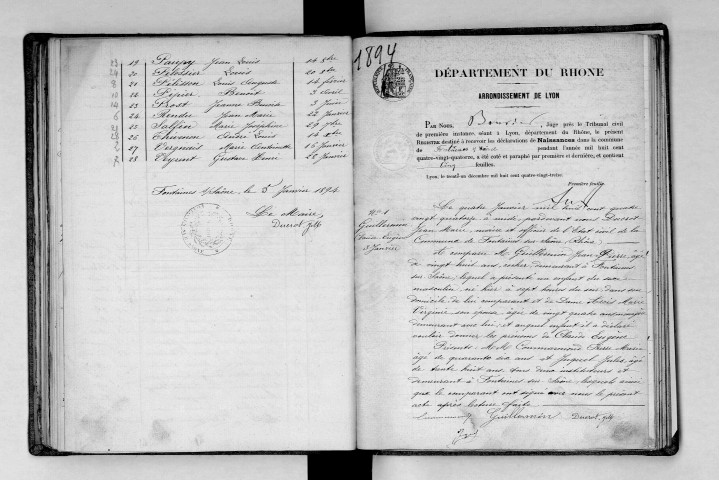 19 Jean Louis 14 8bre
20 Louis 20 8bre
21 Pélisson Louis 14 février
22 Pépier Benoit 3 Avril
23 Prost Jeanne 3 Juin
24 Jean Marie 12 Janvier
25 Marie Joséphine 29 7bre
26 Louis 14 8bre
27 Vergnais Marie 16 Janvier
28 Veyront Gustave 28 Janvier
Fontaines s/Saône, le 5 Janvier 1894
Le Maire,
Ducrot JM
1894
DÉPARTEMENT DU RHONE
ARRONDISSEMENT DE LYON
PAR NOUS, Juge près le Tribunal civil
de première instance, séant à Lyon, département du Rhône, le présent
REGISTRE destiné à recevoir les déclarations de Naissances dans la commune
de Fontaines s/Saône pendant l'année mil huit cent
quatre-vingt-quatorze, a été coté et paraphé par première et dernière, et contient
Cinq feuilles.
Lyon, le trente-un décembre mil huit cent quatre-vingt-treize.
Première feuille.
No 1
Guillermin
Claude Eugène
3 Janvier
Le quatre Janvier mil huit cent quatre
vingt quatorze à midi, pardevant nous Ducrot
Jean Marie, maire et officier de l'Etat civil de la
Commune de Fontaines sur Saône, Rhône,
A comparu M. Guillermin Jean Pierre, âgé
de vingt huit ans, cocher, demeurant à Fontaines
sur Saône, lequel a présenté un enfant du sexe
masculin, né hier à sept heures du soir, dans son
domicile, de lui comparant et de Dame Marie
Virginie son épouse, âgée de vingt quatre ans,
demeurant avec lui, et auquel enfant il a déclaré
vouloir donner les prénoms de Claude Eugène.
Présents: MM. Commarmond Pierre Marie
âgé de quarante six ans et Jules, âgé
de trente huit ans, tous deux instituteurs et
demeurant à Fontaines sur Saône, lesquels ainsi
que le comparant ont signé avec nous le présent
acte après lecture faite.
Guillermin Ducrot JM